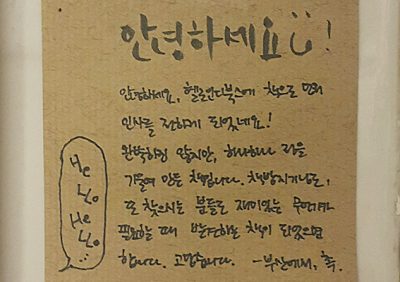 안녕하세요!
안녕하세요, 헬로인디북스에 책으로 먼저
인사를 전하게 되었네요!
완벽하진 않지만, 하나하나 마음을
기울여 만든 책입니다. 책방지기님도,
또 찾으시는 분들도 재미있는 무언가가
필요할 때 발견하는 책이 되었으면
합니다. 고맙습니다. -부산에서,
He
llo
He
llo